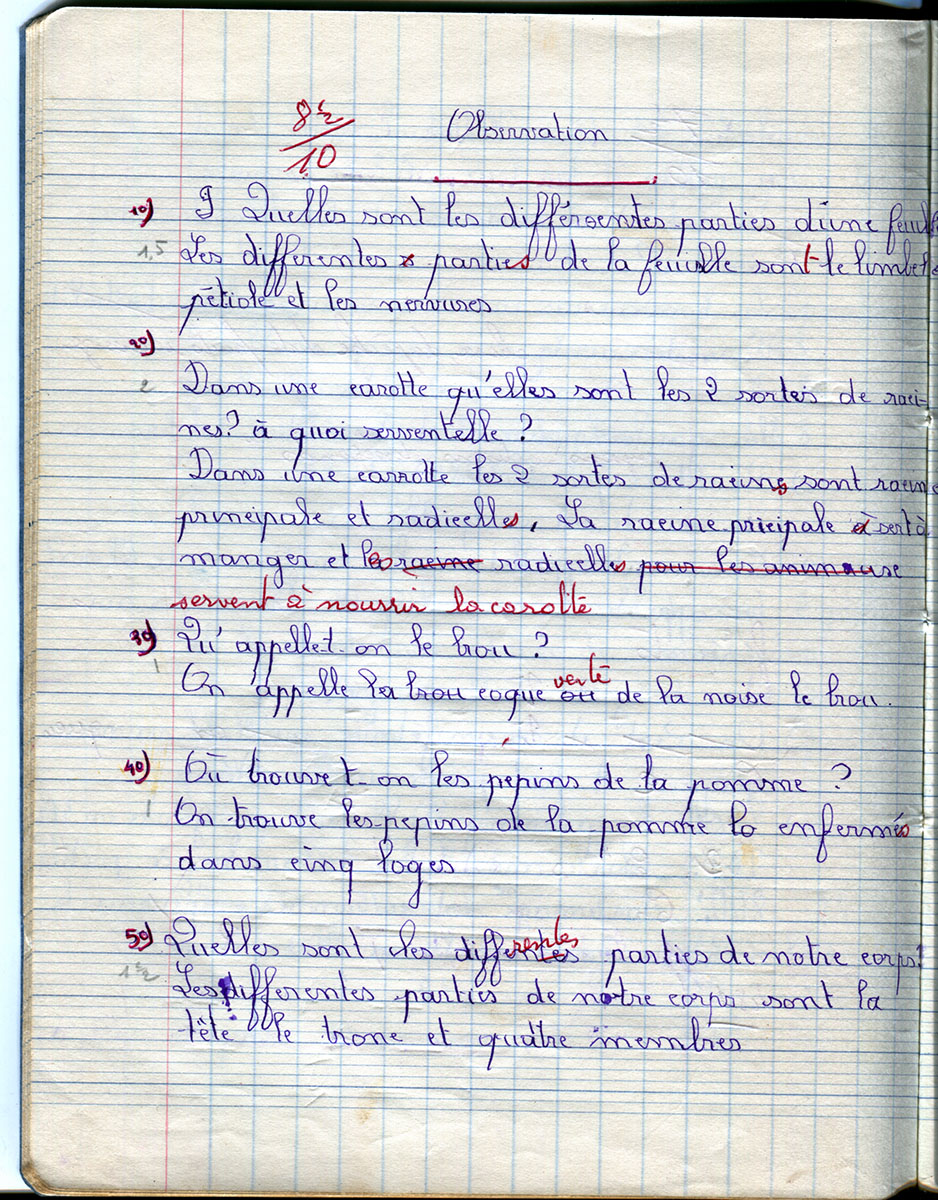 8 ½
10
Observation
1°) I Quelles sont les différentes parties d'une feuill
1,5 Les differentes parties de la feuille sont le limbe l
pétiole et les nervures
2°)
2 Dans une carotte qu'elles sont les 2 sortes de raci-
nes? à quoi serventelle ?
Dans une carrotte les 2 sortes de racins sont racine
principale et radicelles, La racine pricipale sert à
manger et les racine radicelles pour les animause
servent à nourrir la carotte
3°) Qu'appellet-on le brou ?
1 On appelle le brou coque verte ou de la noise le brou.
4°) Où trouve t-on les pépins de la pomme ?
1 On trouve les pepins de la pomme enfermés
dans cinq loges
5°) Quelles sont les differentes parties de notre corps?
1 ½ Les differentes parties de notre corps sont la
tête le tronc et quatre membres